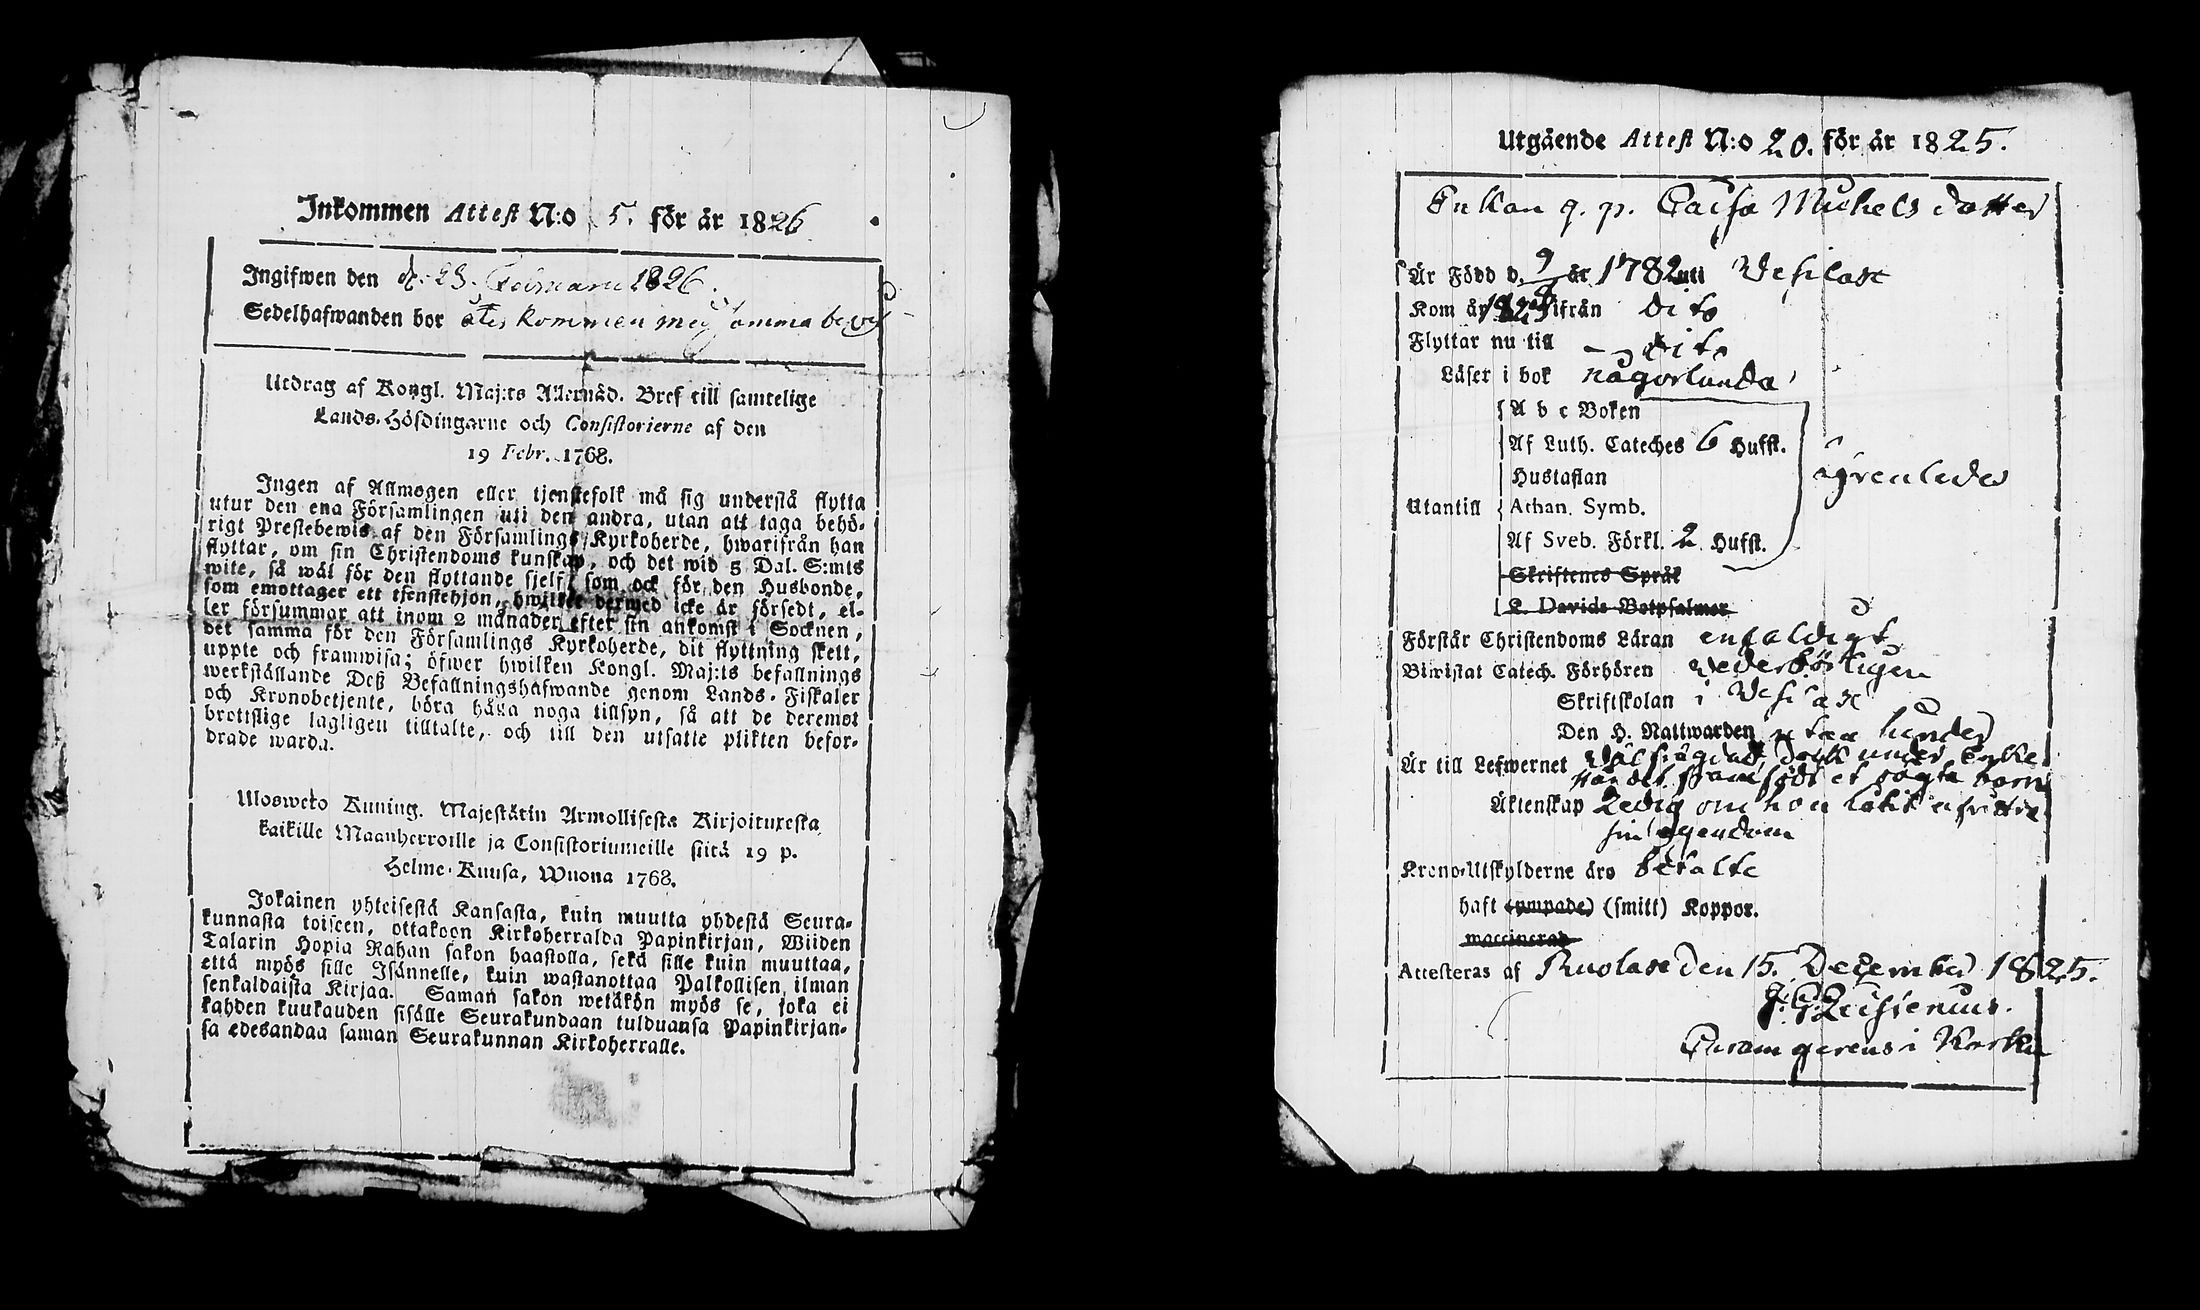 Inkommen Attest N:o 5. för år 1826
Ingifwen den d. 23. Februarii 1826.
Sedelhafwanden bor åter kommen med samma bevis
Utdrag af Kongl. Maj:ts Allernåd. Bref till samtelige
Lands-Höfdingarne och Consistorierne af den
19 Febr. 1768.
Ingen af Allmogen eller tjenstefolk må sig understå flytta
utur den ena Församlingen uti den andra, utan att taga behö-
rigt Prestebewis af den Församlings Kyrkoherde, hwarifrån han
flyttar, om sin Christendoms kunskap, och det wid 5 Dal. S:mts
wite, så wäl för den flyttande sjelf, som ock för den Husbonde,
som emottager ett tjenstehjon, hwilket dermed icke är försedt, el-
ler försummar att inom 2 månader efter sin ankomst i Socknen,
det samma för den Församlings Kyrkoherde, dit flyttning skett,
uppte och framwisa; öfwer hwilken Kongl. Maj:ts befallnings
werkställande Deß Befallningshafwande genom Lands-Fiskaler
och Kronobetjente, böra hålla noga tillsyn, så att de deremot
brottslige lagligen tilltalte, och till den utsatte plikten befor-
drade warda.
Ulosweto Kuning. Majestätin Armollisesta Kirjoituxesta
kaikille Maanherroille ja Consistoriumeille siitä 19 p.
Helme-Kuusa, Wuona 1768.
Jokainen yhteisestä Kansasta, kuin muutta yhdestä Seura-
kunnasta toiseen, ottakoon Kirkoherralda Papinkirjan, Wiiden
Talarin Hopia Rahan sakon haastolla, sekä sille kuin muuttaa,
että myös sille Isännelle, kuin wastanottaa Palkollisen ilman
senkaldaista Kirjaa. Saman sakon wetäkön myös se, joka ei
kahden kuukauden sisälle Seurakundaan tulduansa Papinkirjan-
sa edesandaa saman Seurakunnan Kirkoherralle.
Utgående Attest N:o 20. för år 1825.
Enkan q. p. Caisa Michels dotter
Är Född d. 9/9 år 1782 uti Vesilax
Kom år 1825 ifrån dito
Flyttar nu till dito
Läser i bok någorlunda
A b c Boken
Af Luth. Cateches 6 Hufst.
Hustaflan
Utantill Athan. Symb.
Af Sveb. Förkl. 2 Hufst.
Skriftenes Språk
K. Davids Botpsalmer
Förstår Christendoms Läran enfaldigt
Biwistat Catech. Förhören vederbörligen
Skriftskolan i Vesilax
Den H. Nattwarden utan hinder
Är till Lefwernet
Äktenskap Ledig om hon
sin egendom
Krono-Utskylderne äro betalte
haft (ympade) (smitt) Koppor.
waccinerad
Attesteras af Ruolaxe den 15. December 1825.
Curam gerens i Karku